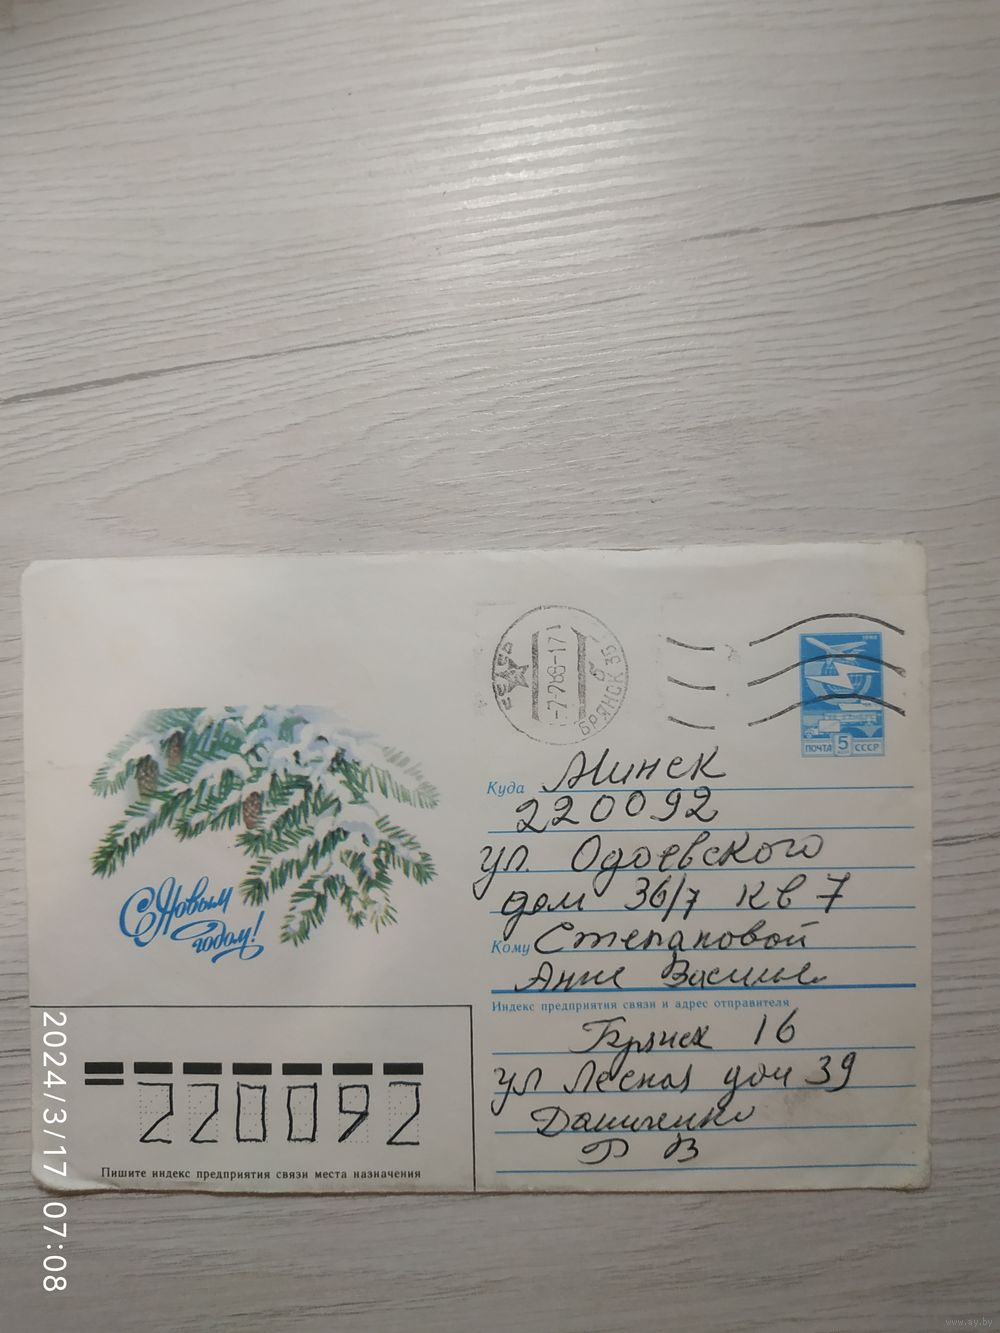 СССР
-7-7 88-17
БРЯНСК 35
ПОЧТА 5 СССР
Куда Минск
220092
ул. Одоевского
дом 36/7 кв 7
Кому Степановой
Анне Василье
Индекс предприятия связи и адрес отправителя
Брянск 16
ул Лесная дом 39
Даниченко
В
С Новым
годом!
220092
Пишите индекс предприятия связи места назначения
2024/3/17 07:08
www.ay.by